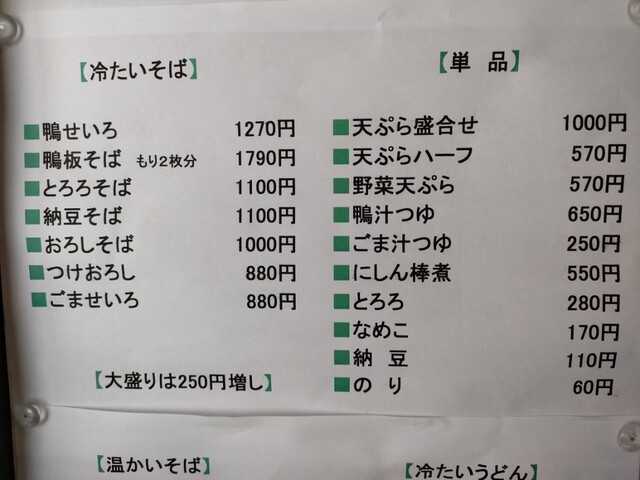 【冷たいそば】
■鴨せいろ 1270円
■鴨板そば もり2枚分 1790円
■とろろそば 1100円
■納豆そば 1100円
■おろしそば 1000円
■つけおろし 880円
■ごませいろ 880円
【大盛りは250円増し】
【温かいそば】
【単 品】
■天ぷら盛合せ 1000円
■天ぷらハーフ 570円
■野菜天ぷら 570円
■鴨汁つゆ 650円
■ごま汁つゆ 250円
■にしん棒煮 550円
■とろろ 280円
■なめこ 170円
■納 豆 110円
■の り 60円
【冷たいうどん】